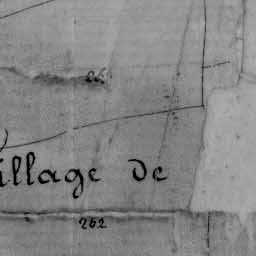 illage de
262